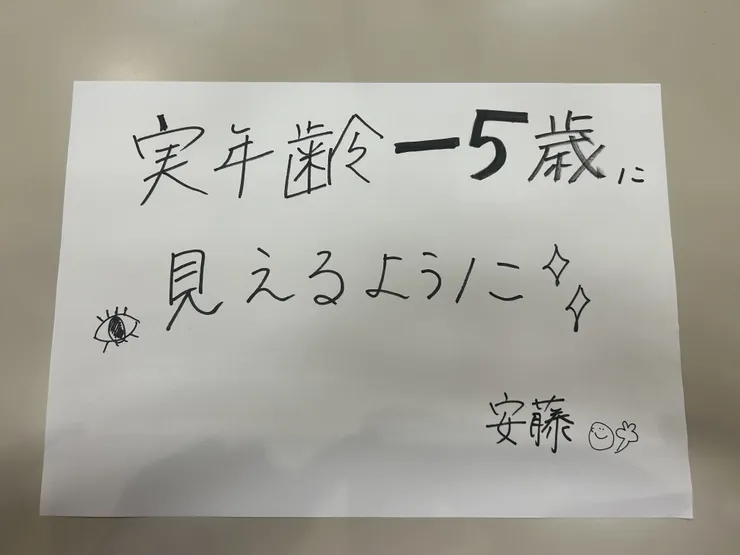 実年齢-5歳に
見えるように
安藤